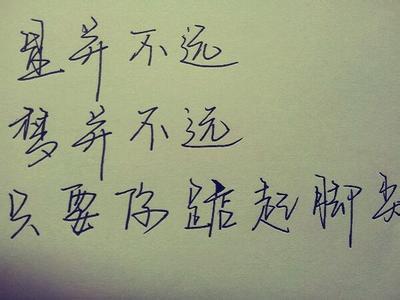 星并不远
梦并不远
只要你踮起脚尖